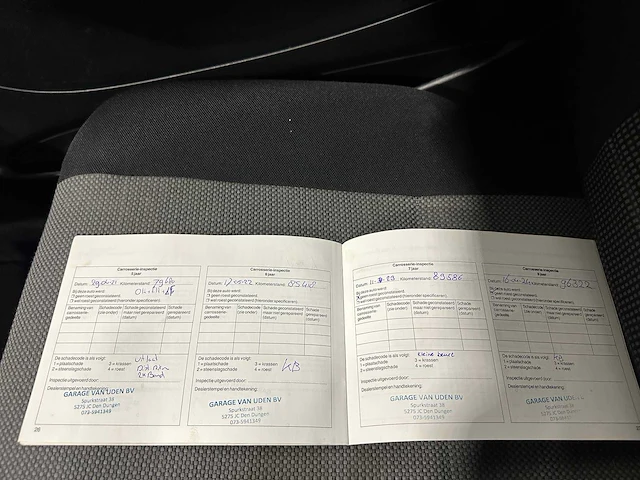 Carrosserie-inspectie
5 jaar
Kilometerstand:
Bij deze auto werd:
geen roest geconstateerd.
wel roest geconstateerd (hieronder specificeren):
Benaming van carrosserie- gedeelte
Schadecode (zie onder)
Schade geconstateerd maar niet gerepareerd (datum)
Schade gerepareerd (datum)
De schadecode is als volgt:
1 = plaatschade 3 = krassen
2 = steenslagschade 4 = roest
Inspectie uitgevoerd door:
Dealerstempel en handtekening:
GARAGE VAN UDEN BV
Spurkstraat 38
5275 JC Den Dungen
073-5941349
26
Carrosserie-inspectie
6 jaar
Datum: Kilometerstand:
Bij deze auto werd:
geen roest geconstateerd.
wel roest geconstateerd (hieronder specificeren):
Benaming van carrosserie- gedeelte
Schadecode (zie onder)
Schade geconstateerd maar niet gerepareerd (datum)
Schade gerepareerd (datum)
De schadecode is als volgt:
1 = plaatschade 3 = krassen
2 = steenslagschade 4 = roest
KB
Inspectie uitgevoerd door:
Dealerstempel en handtekening:
GARAGE VAN UDEN BV
Spurkstraat 38
5275 JC Den Dungen
073-5941349
Carrosserie-inspectie
7 jaar
Datum: Kilometerstand: 89586
Bij deze auto werd:
geen roest geconstateerd.
wel roest geconstateerd (hieronder specificeren):
Benaming van carrosserie- gedeelte
Schadecode (zie onder)
Schade geconstateerd maar niet gerepareerd (datum)
Schade gerepareerd (datum)
De schadecode is als volgt: kleine beurt
1 = plaatschade 3 = krassen
2 = steenslagschade 4 = roest
Inspectie uitgevoerd door:
Dealerstempel en handtekening:
GARAGE VAN UDEN BV
Spurkstraat 38
5275 JC Den Dungen
073-5941349
Carrosserie-inspectie
8 jaar
Datum: Kilometerstand: 96322
Bij deze auto werd:
geen roest geconstateerd.
wel roest geconstateerd (hieronder specificeren):
Benaming van carrosserie- gedeelte
Schadecode (zie onder)
Schade geconstateerd maar niet gerepareerd (datum)
Schade gerepareerd (datum)
De schadecode is als volgt: KB
1 = plaatschade 3 = krassen
2 = steenslagschade 4 = roest
Inspectie uitgevoerd door:
Dealerstempel en handtekening:
GARAGE VAN
Spurkstraat 38
5275 JC Den
073-5941349